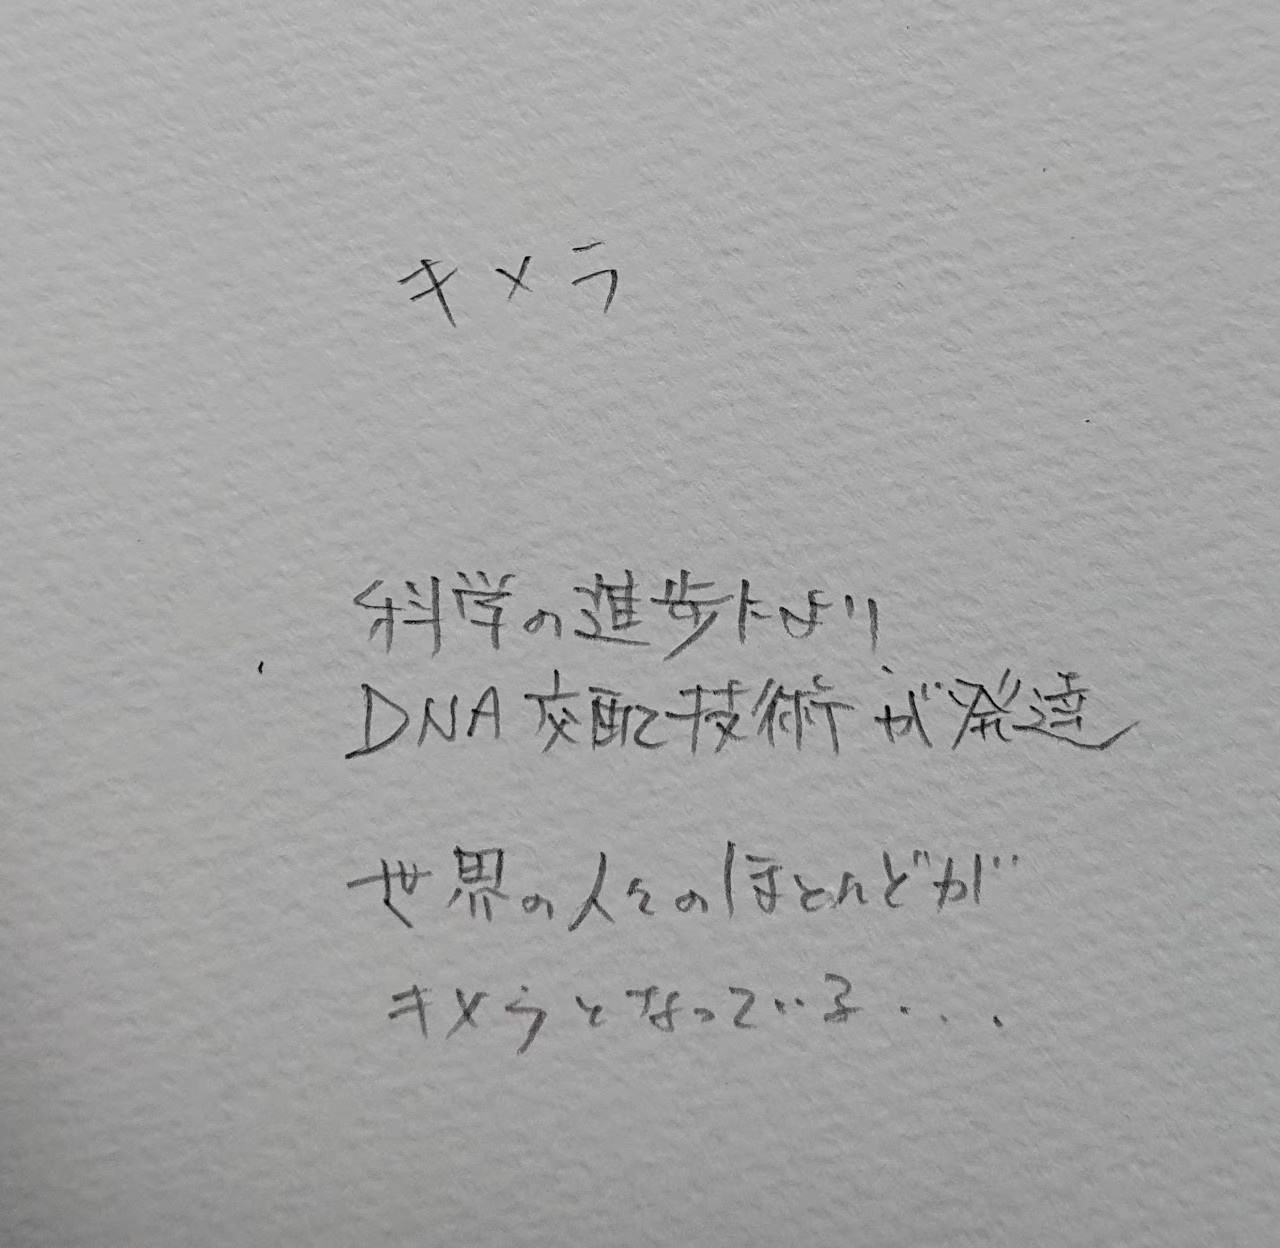 キメラ
科学の進歩により
DNA交配技術が発達
世界の人々のほとんどが
キメラとなっている...